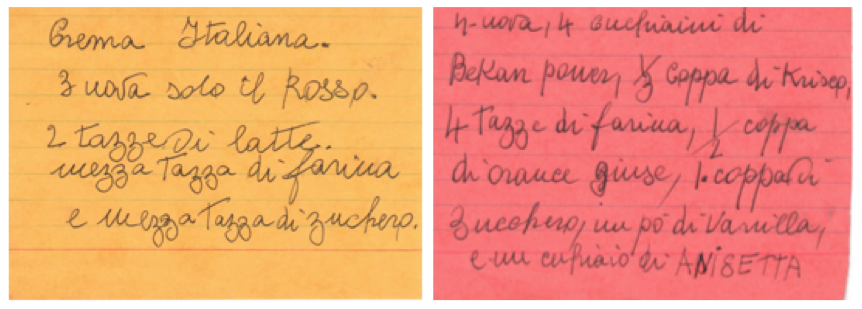 Crema Italiana.
3 uova solo il Rosso.
2 tazze di latte.
mezza Tazza di farina
e mezza Tazza di zuchero.
4 uova, 4 cuchiaini di
BeKan power, 1/2 coppa di Krisco,
4 Tazze di farina, 1/2 coppa
di orance giuse, 1. coppa di
zucchero, un pò di Vanilla,
e un cuhiaio di ANISETTA